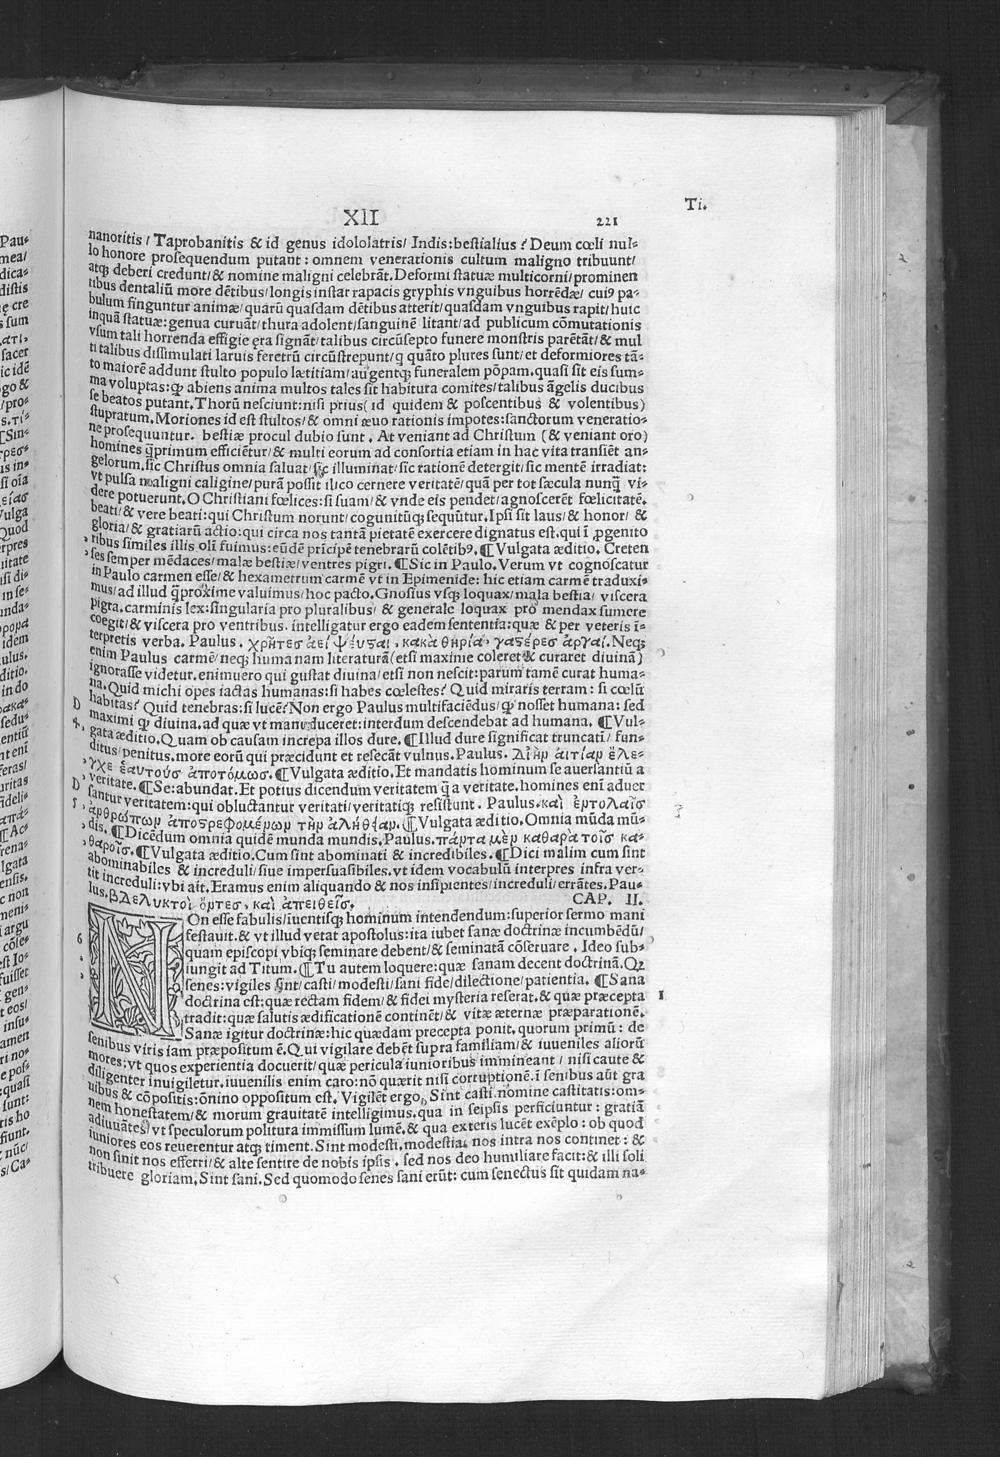 Ti.
XII 221
nanoritis/ Taprobanitis & id genus idololatris/ Indis:bestialius? Deum cœli nul-
lo honore prosequendum putant: omnem venerationis cultum maligno tribuunt/
atqꝫ deberi credunt/& nomine maligni celebrāt. Deformi statuæ multicorni/prominen
tibus dentaliū more dētibus/longis instar rapacis gryphis vnguibus horrēdæ/ cuiꝰ pa-
bulum finguntur animæ/quarū quasdam dētibus atterit/quasdam vnguibus rapit/huic
inquā statuæ:genua curuāt/thura adolent/sanguinē litant/ad publicum cōmutationis
vsum tali horrenda effigie ęra signāt/talibus circūsepto funere monstris parētāt/& mul
ti talibus dissimulati laruis feretrū circūstrepunt/q quāto plures sunt/et deformiores tā-
to maiorē addunt stulto populo lætitiam/augentqꝫ funeralem pōpam.quasi sit eis sum-
ma voluptas:ꝙ abiens anima multos tales sit habitura comites/talibus āgelis ducibus
se beatos putant.Thorū nesciunt:nisi prius(id quidem & poscentibus & volentibus)
stupratum.Moriones id est stultos/& omni æuo rationis impotes:sanctorum veneratio-
ne prosequuntur. bestiæ procul dubio sunt. At veniant ad Christum (& veniant oro)
homines q̄primum efficiētur/& multi eorum ad consortia etiam in hac vita transiēt an-
gelorum.sic Christus omnia saluat/sic illuminat/sic rationē detergit/sic mentē irradiat:
vt pulsa maligni caligine/purā possit ilico cernere veritatē/quā per tot sæcula nunq̄ vi-
dere potuerunt.O Christiani fœlices:si suam/& vnde eis pendet/agnoscerēt fœlicitatē.
beati/& vere beati:qui Christum norunt/cogunitūqꝫ sequūtur.Ipsi sit laus/& honor/ &
gloria/& gratiarū actio:qui circa nos tantā pietatē exercere dignatus est.qui ī ꝓgenito
ribus similes illis olī fuimus:eūdē prīcipē tenebrarū colētibꝰ.¶Vulgata æditio. Creten
ses semper mēdaces/malæ bestiæ/ventres pigri.¶Sic in Paulo.Verum vt cognoscatur
in Paulo carmen esse/& hexametrum carmē vt in Epimenide: hic etiam carmē traduxi-
mus/ad illud q̄proxime valuimus/hoc pacto.Gnosius vsqꝫ loquax/mala bestia/ viscera
pigra.carminis lex:singularia pro pluralibus/ & generale loquax pro mendax sumere
coegit/& viscera pro ventribus. intelligatur ergo eadem sententia:quæ & per veteris ī-
terpretis verba. Paulus. χρῆτεσ ἀεὶ ψεῦσαι, κακὰ θηρία, γαστέρεσ ἀργαί. Neqꝫ
enim Paulus carmē/neqꝫ humanam literaturā(etsi maxime coleret & curaret diuinā)
ignorasse videtur.enimuero qui gustat diuina/etsi non nescit:parum tamē curat huma-
na.Quid michi opes iactas humanas:si habes cœlestes? Quid miraris terram: si cœlū
habitas? Quid tenebras:si lucē?Non ergo Paulus multifaciēdus/ꝙ nosset humana: sed
maximi ꝙ diuina.ad quæ vt manuduceret:interdum descendebat ad humana.¶Vul-
gata æditio.Quam ob causam increpa illos dure.¶Illud dure significat truncatī/fun-
ditus/penitus.more eorū qui præcidunt et resecāt vulnus.Paulus. Δι' ἣν αἰτίαν ἔλε-
γχε ἑαυτοὺσ ἀποτόμωσ.¶Vulgata æditio.Et mandatis hominum se auersantiū a
veritate.¶Se:abundat.Et potius dicendum veritatem q̄ a veritate.homines eni aduer
santur veritatem:qui obluctantur veritati/veritatiqꝫ resistunt. Paulus.καὶ ἐντολαῖσ
ἀνθρώπων ἀποστρεφομένων τὴν ἀλήθειαν.¶Vulgata æditio.Omnia mūda mū-
dis.¶Dicēdum omnia quidē munda mundis.Paulus.πάντα μὲν καθαρὰ τοῖσ κα-
θαροῖσ.¶Vulgata æditio.Cum sint abominati & incredibiles.¶Dici malim cum sint
abominabiles & increduli/siue impersuasibiles.vt idem vocabulū interpres infra ver-
tit increduli:vbi ait.Eramus enim aliquando & nos insipientes/increduli/errātes.Pau-
lus.βδελυκτοὶ ὄντεσ, καὶ ἀπειθεῖσ. CAP. II.
NOn esse fabulis/iuentisqꝫ hominum intendendum:superior sermo mani
festauit.& vt illud vetat apostolus:ita iubet sanæ doctrinæ incumbēdū/
quam episcopi vbiqꝫ seminare debent/& seminatā cōseruare. Ideo sub-
iungit ad Titum.¶Tu autem loquere:quæ sanam decent doctrinā.Qꝫ
senes:vigiles sint/casti/modesti/sani fide/dilectione/patientia.¶Sana
doctrina est:quæ rectam fidem/& fidei mysteria reserat.& quæ præcepta
tradit:quæ salutis ædificationē continēt/& vitæ æternæ præparationē.
Sanæ igitur doctrinæ:hic quædam precepta ponit.quorum primū: de
senibus viris iam præpositum ē.Qui vigilare debēt supra familiam/& iuueniles aliorū
mores:vt quos experientia docuerit/quæ pericula iunioribus immineant/ nisi caute &
diligenter inuigiletur.iuuenilis enim caro:nō quærit nisi corruptionē.ī senibus aūt gra
uibus & cōpositis:ōnino oppositum est.Vigilēt ergo.Sint casti.nomine castitatis:om-
nem honestatem/& morum grauitatē intelligimus.qua in seipsis perficiuntur: gratiā
adiuuātes/vt speculorum politura immissum lumē.& qua exteris lucēt exēplo: ob quod
iuniores eos reuerentur atqꝫ timent.Sint modesti.modestia: nos intra nos continet: &
non sinit nos efferri/& alte sentire de nobis ipsis. sed nos deo humiliare facit:& illi soli
tribuere gloriam.Sint sani.Sed quomodo senes sani erūt: cum senectus sit quidam na-